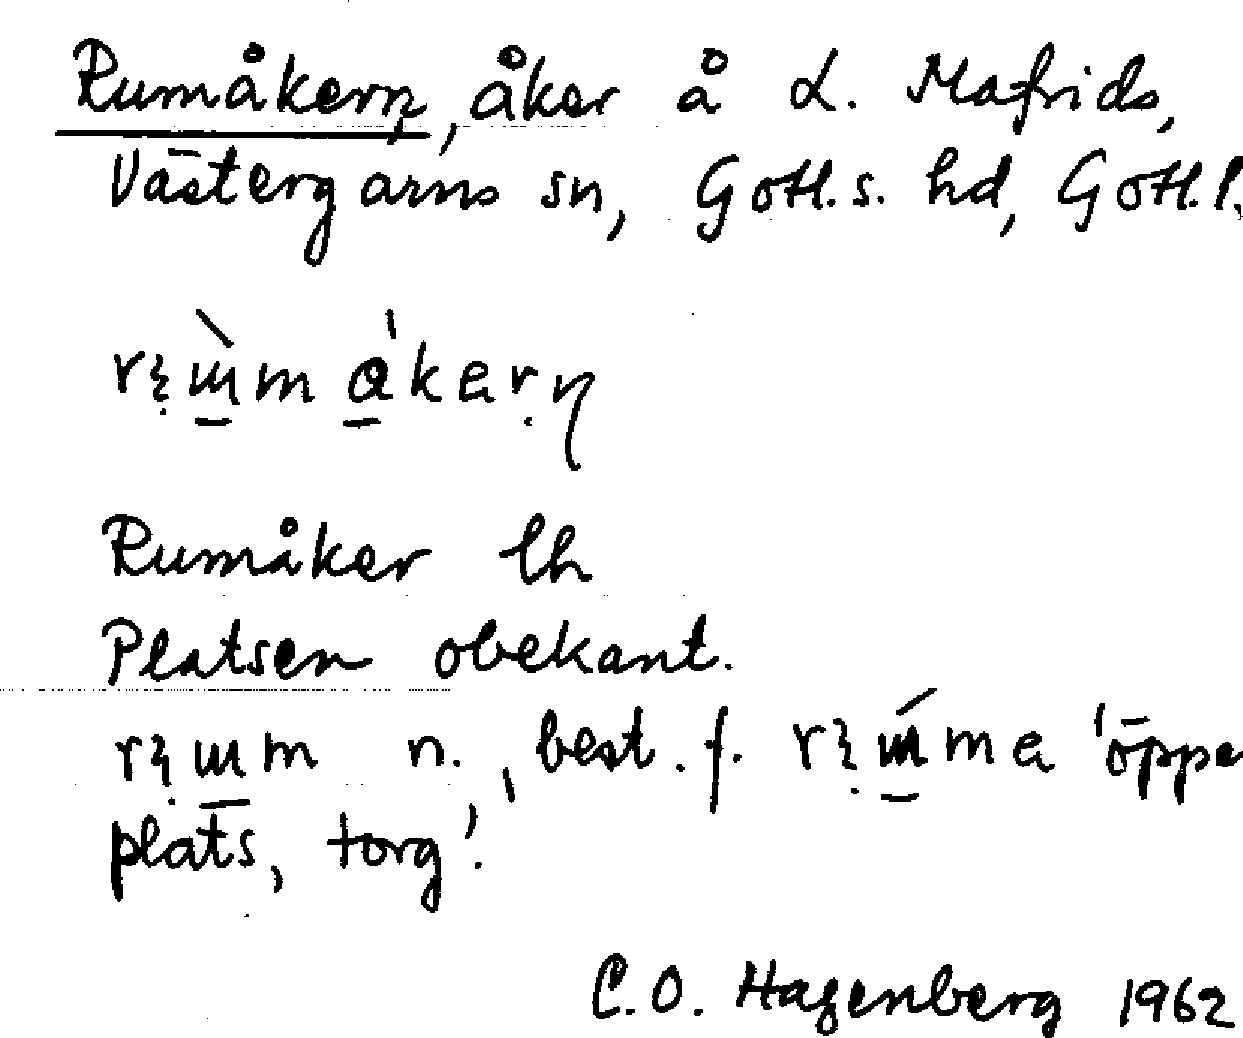 Rumåkern, åker å L. Mafrids,
Västergarns sn, Gotl. s. hd, Gotl. l.
Rumåker lh
Platsen obekant.
n., best. f. 'öppe
plats, torg'.
C.O. Hagenberg 1962